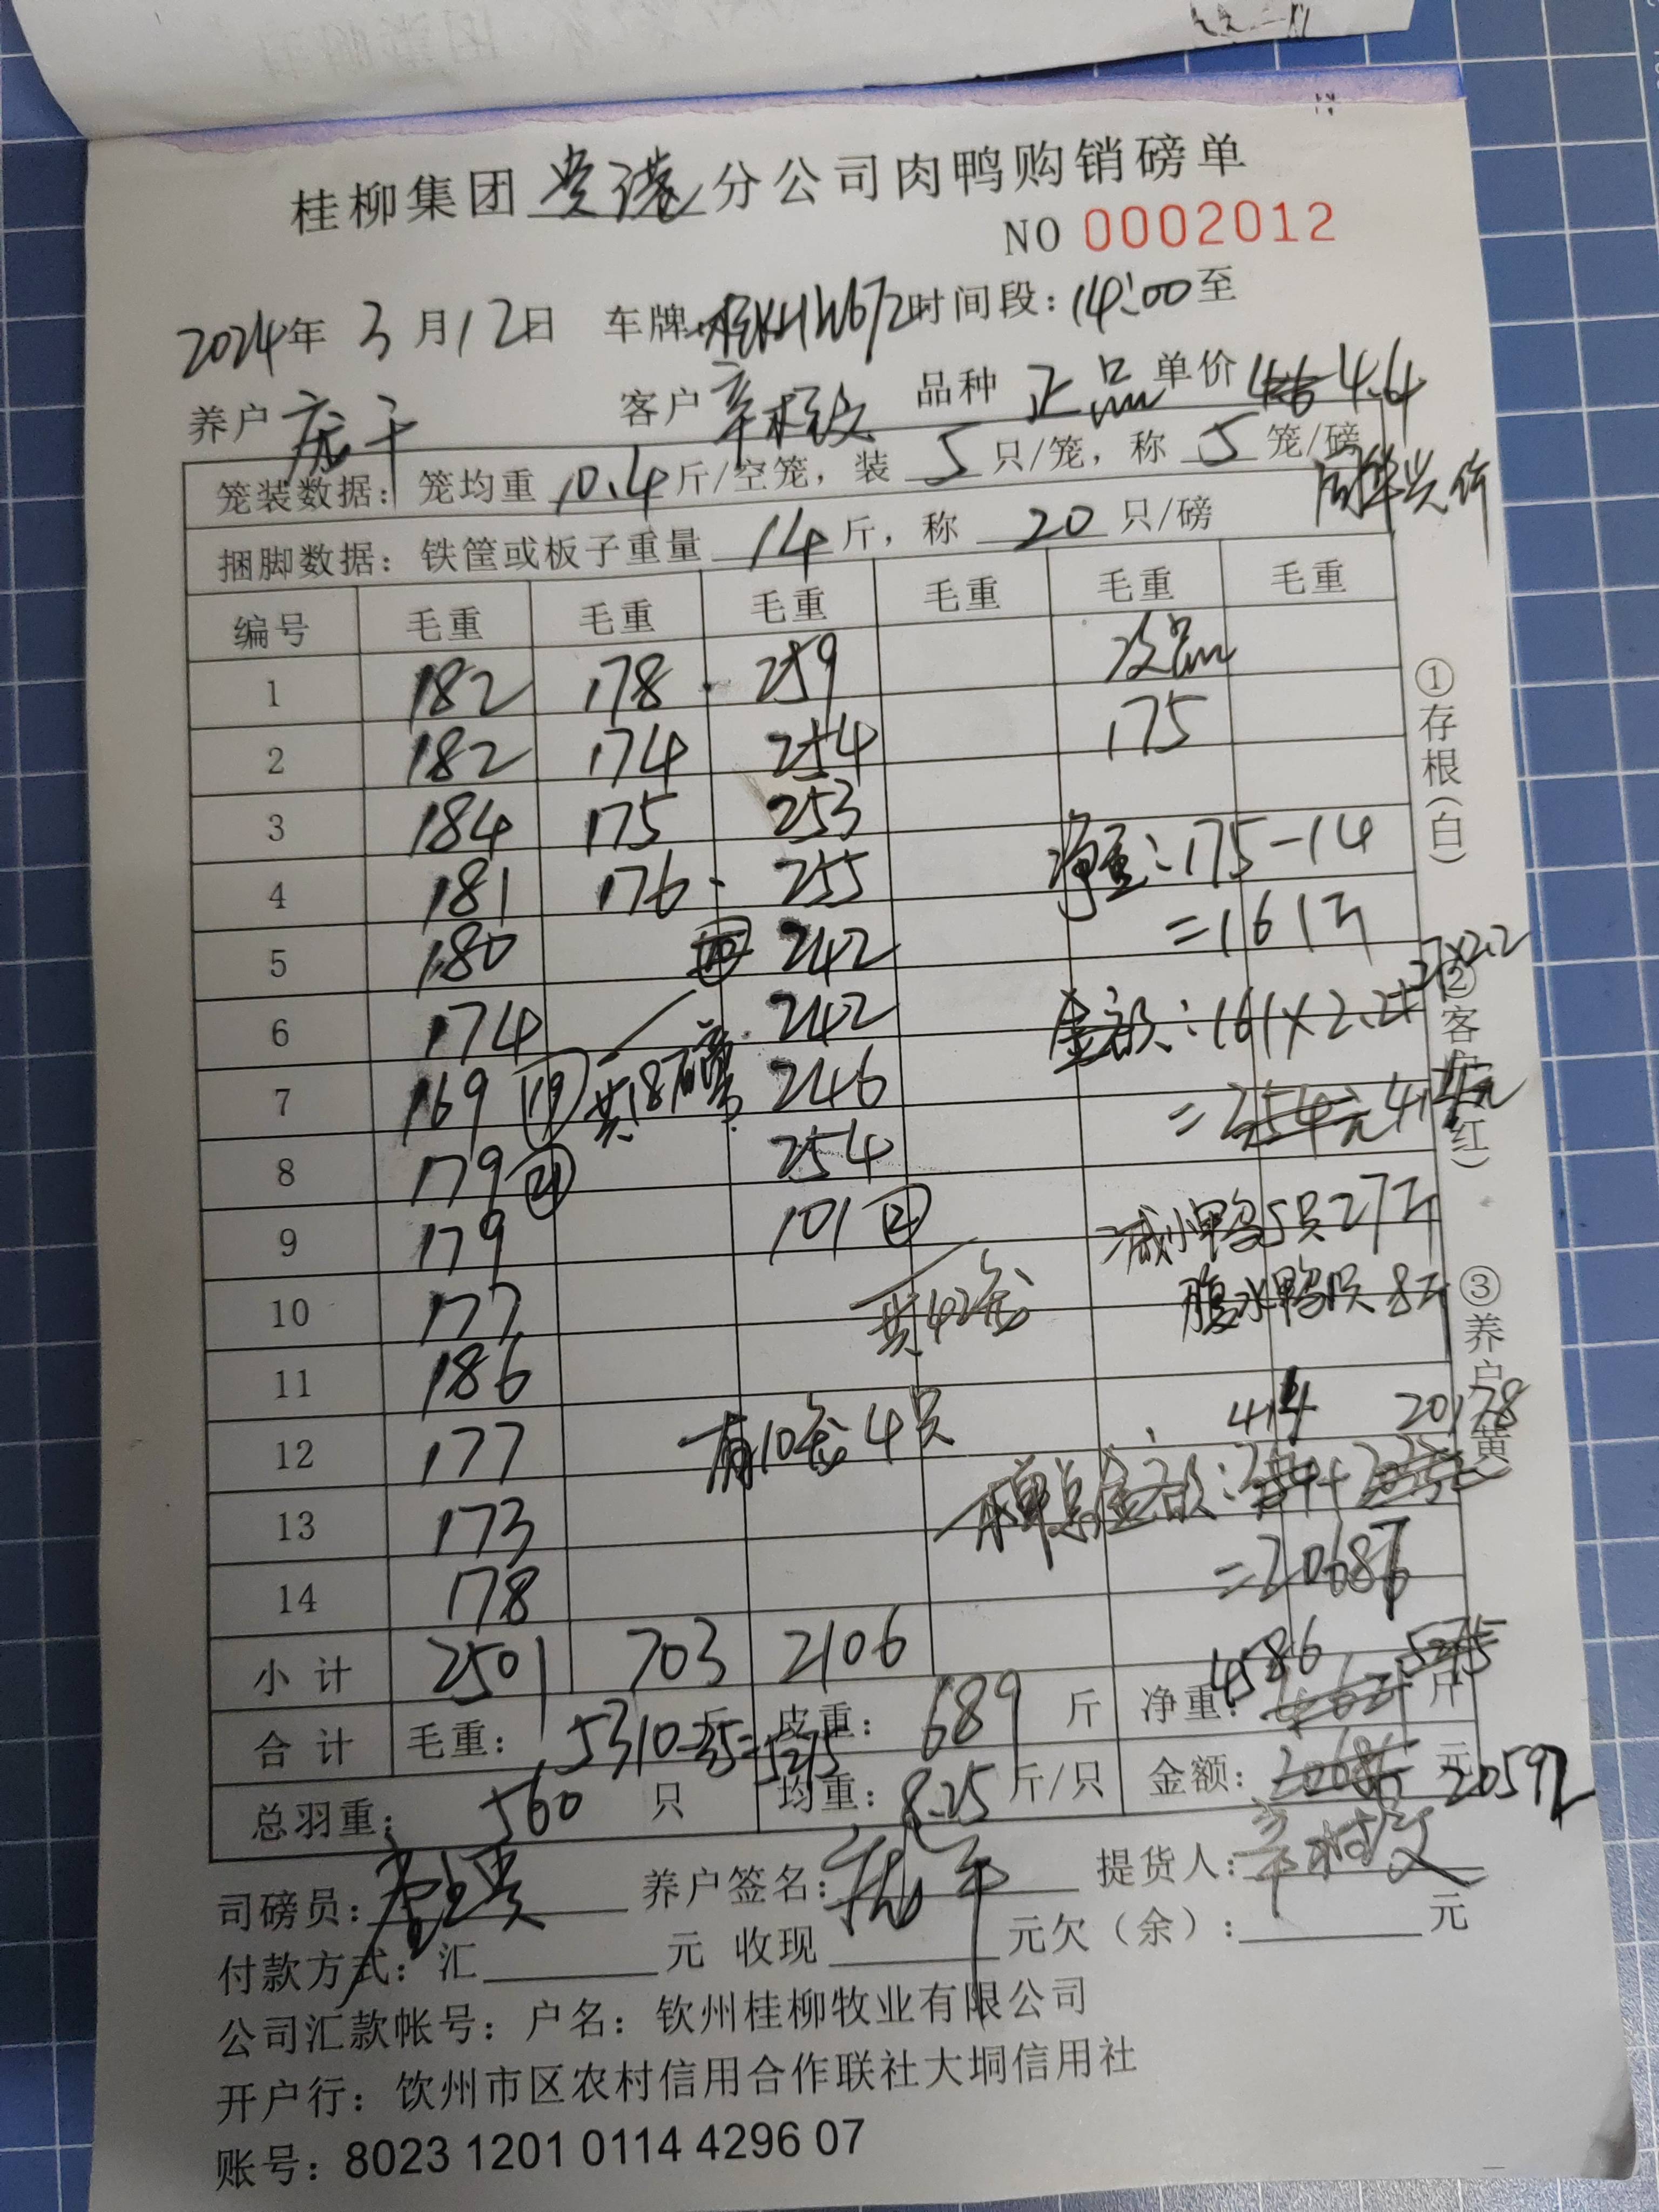 桂柳集团贵港分公司肉鸭购销磅单
NO 0002012
2024年 3月12日 车牌 时间段：14:00至
养户 庞干 客户 辛树文 品种 正品 单价 4.6 4.4
笼装数据：笼均重 10.4 斤/空笼，装 5 只/笼，称 5 笼/磅
捆脚数据：铁筐或板子重量 14 斤，称 20 只/磅
编号 毛重 毛重 毛重 毛重 毛重 毛重
1 182 178 259 次品
2 182 174 254 175
3 184 175 253
净重：175-14
4 181 176 255
=161斤
5 180 242
27×2.2
6 174 242 金额：161×2.2+
7 169 ⑲ 共18磅 246
=354元 414元
8 179 ㉑ 254
9 179 101 减小鸭5只27斤
10 177 共42笼 腹水鸭1只8斤
11 186
414 20178
12 177 有10笼4只
13 173 本单总金额：
14 178 =20686
小计 2501 703 2106
4586 5275
合计 毛重：5310-35=5275 皮重：689斤 净重： 斤
总羽重：560 只 均重：8.25斤/只 金额：20686元 20592
司磅员： 养户签名： 提货人：辛树文
付款方式：汇 元 收现 元欠（余）： 元
公司汇款帐号：户名：钦州桂柳牧业有限公司
开户行：饮州市区农村信用合作联社大垌信用社
账号：8023 1201 0114 4296 07
①存根（白）
②客户（红）
③养户（黄）